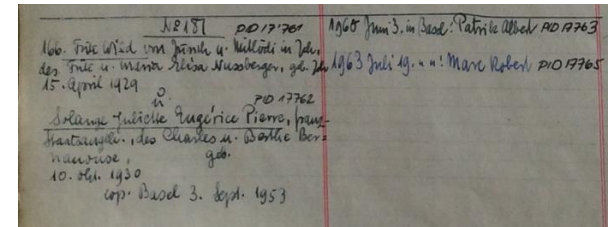 No 181 PID 17'761
166. Fritz Wild von Zürich u. Mitlödi in Zch,
des Fritz u. Maria Elisa Nussberger, geb. Zch
15. April 1929
u. PID 17762
Solange Juliette Eugénice Pierre, franz.
Staatsangeh., des Charles u. Berthe Ber-
geb.
10. Okt. 1930
cop. Basel 3. Sept. 1953
1960 Juni 3. in Basel: Patrik Albert PID 17763
1963 Juli 19. " ": Marc Robert PID 17765